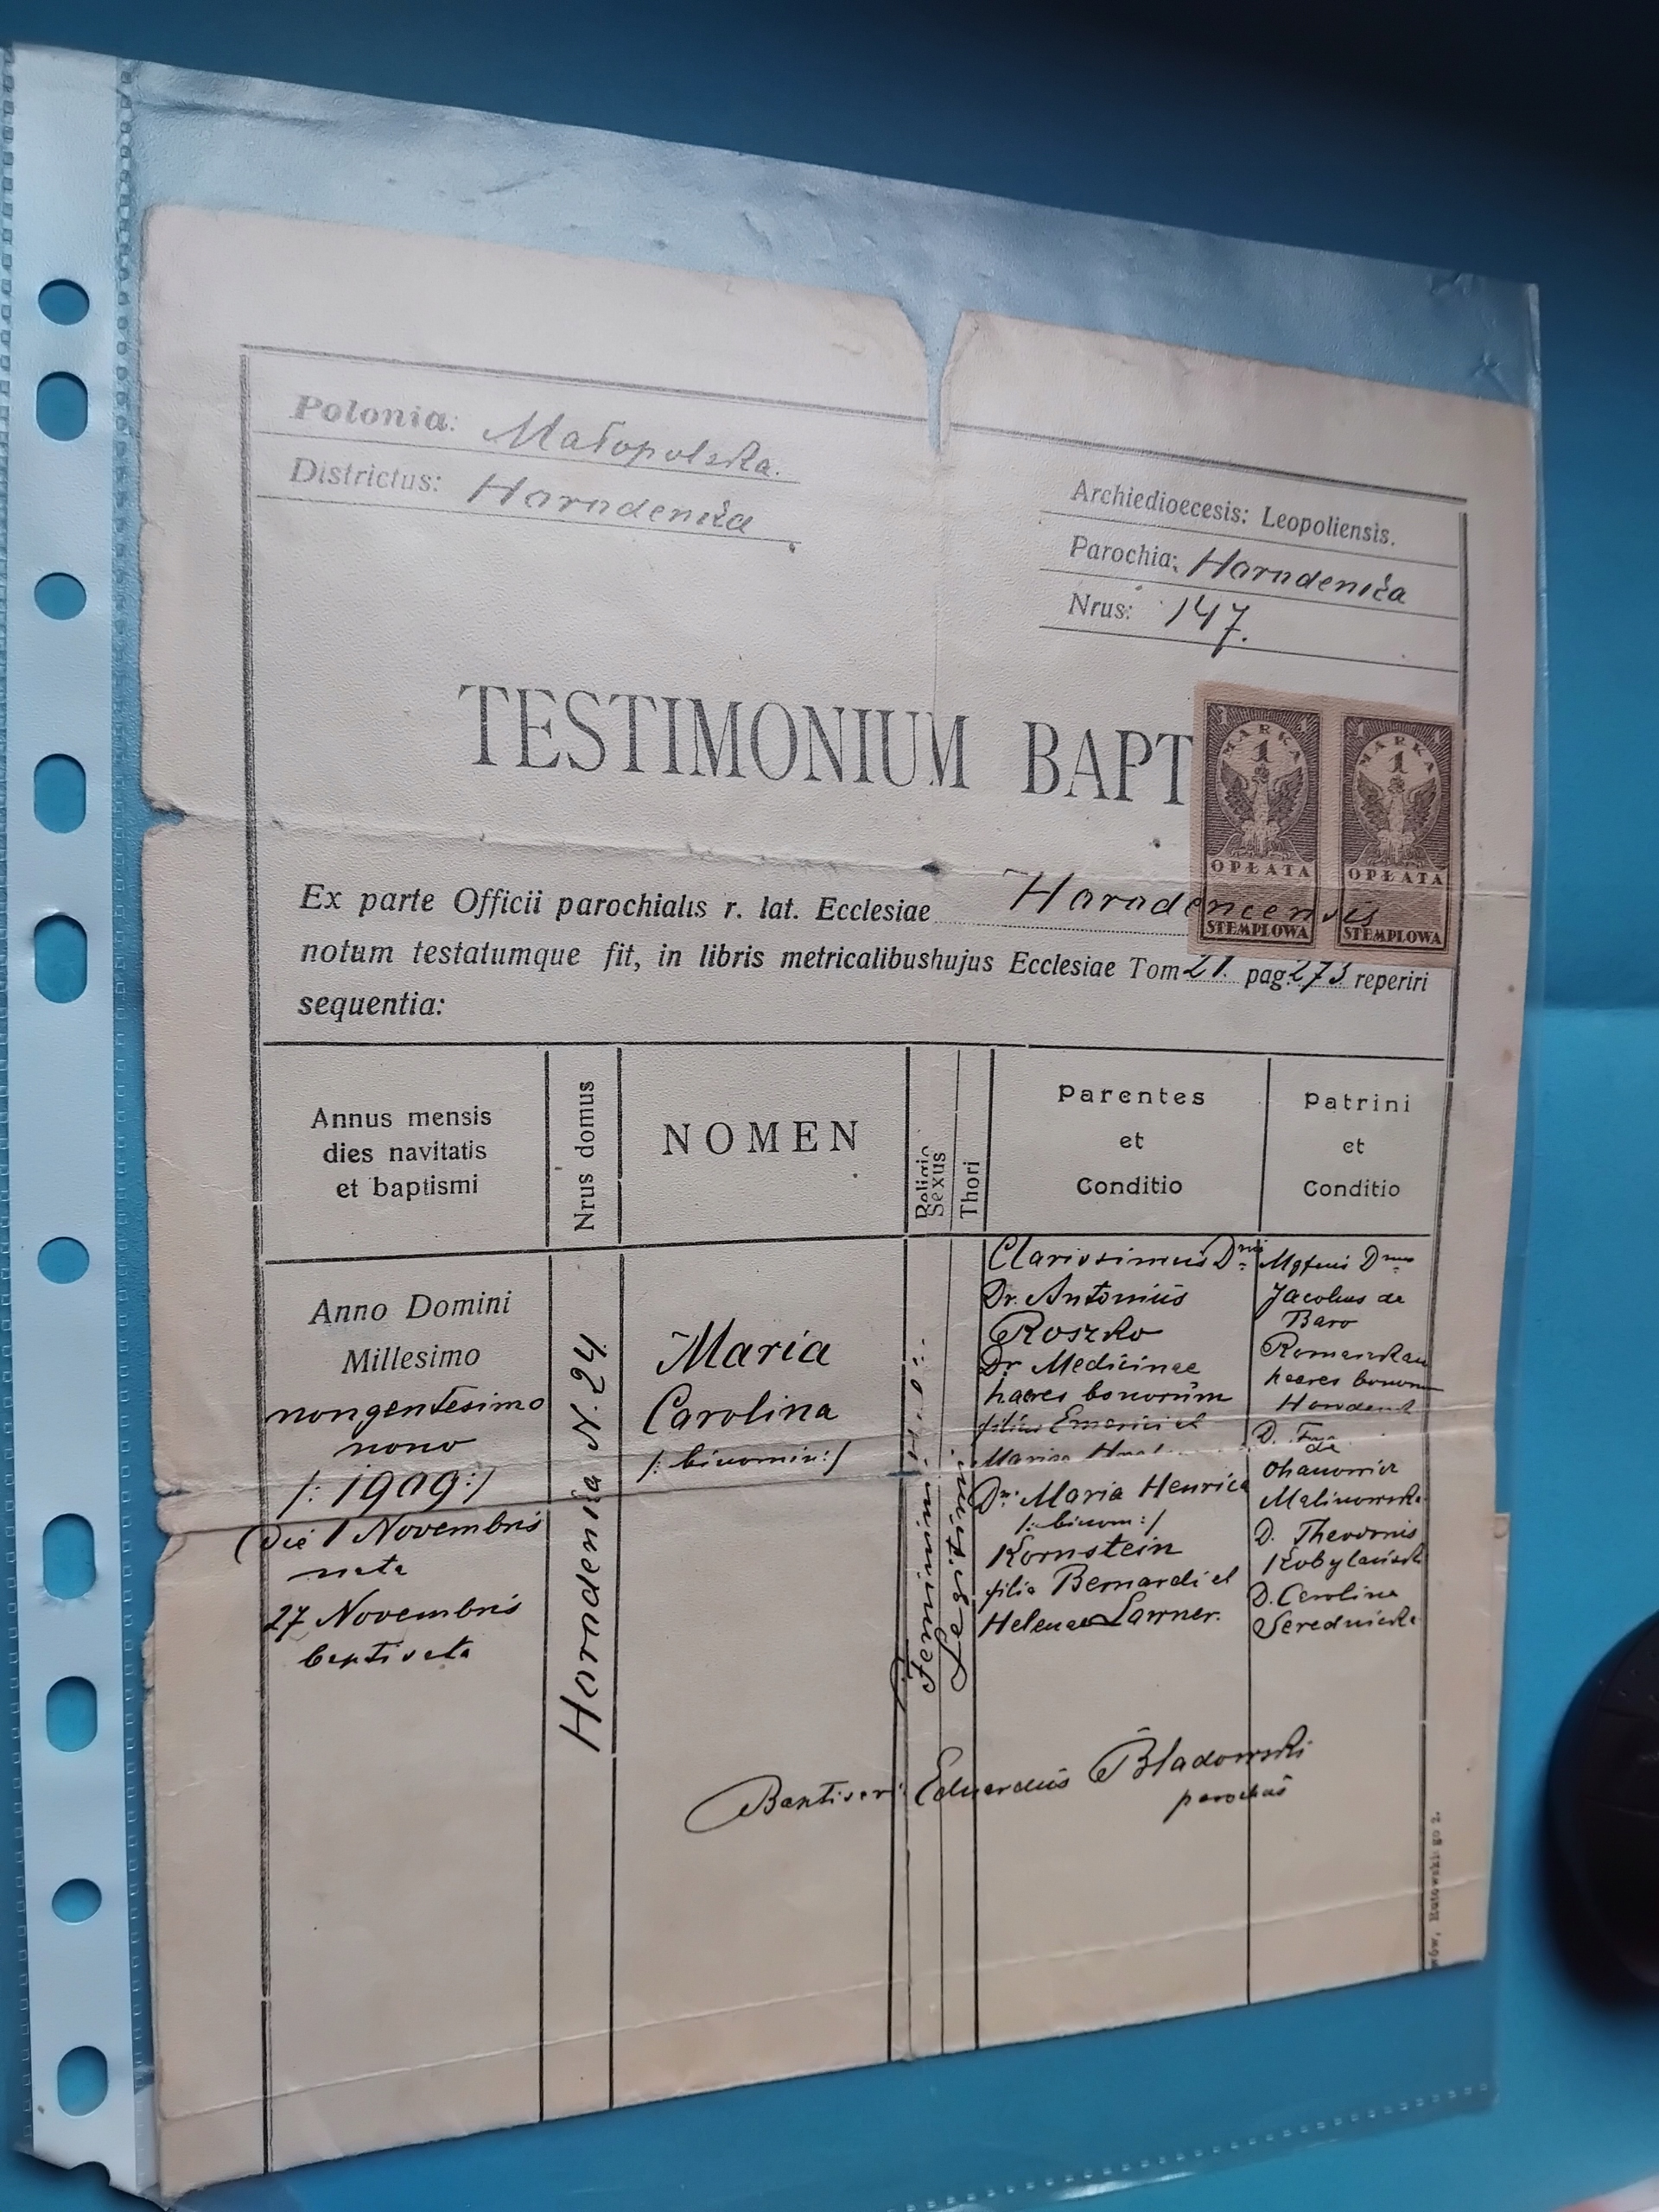 Polonia: Małopolska.
Districtus: Horodenka
Archiedioecesis: Leopoliensis.
Parochia: Horodenka
Nrus: 147.
TESTIMONIUM BAPT
1 MARKA 1
OPŁATA
STEMPLOWA
1 MARKA 1
OPŁATA
STEMPLOWA
Ex parte Officii parochialis r. lat. Ecclesiae Horodencensis
notum testatumque fit, in libris metricalibushujus Ecclesiae Tom 21. pag. 273 reperiri
sequentia:
Annus mensis
dies navitatis
et baptismi
Nrus domus
NOMEN
Religio
Sexus
Thori
Parentes
et
Conditio
Patrini
et
Conditio
Anno Domini
Millesimo
nongentesimo
nono
/: 1909:/
Die 1 Novembris
nata
27 Novembris
baptisata
Horodenka N. 24
Maria
Carolina
/: binomin:/
Femininum
Clarissimus Dnus
Dr. Antonius
Roszko
Dr Medicinae
haeres bonorum
filius Emerici et
Mariae
Dna Maria Henrica
/: binom:/
Kornstein
filia Bernardi et
Helenae Lawner.
Dnus
Jacobus de
Baro
Romaszkan
haeres bonorum
D.
de
Ohanowicz
Malinowska
D. Theodorus
D. Carolina
Serednicka
Eduardus Bladowski
parochus
wów, Rutowski go 2.